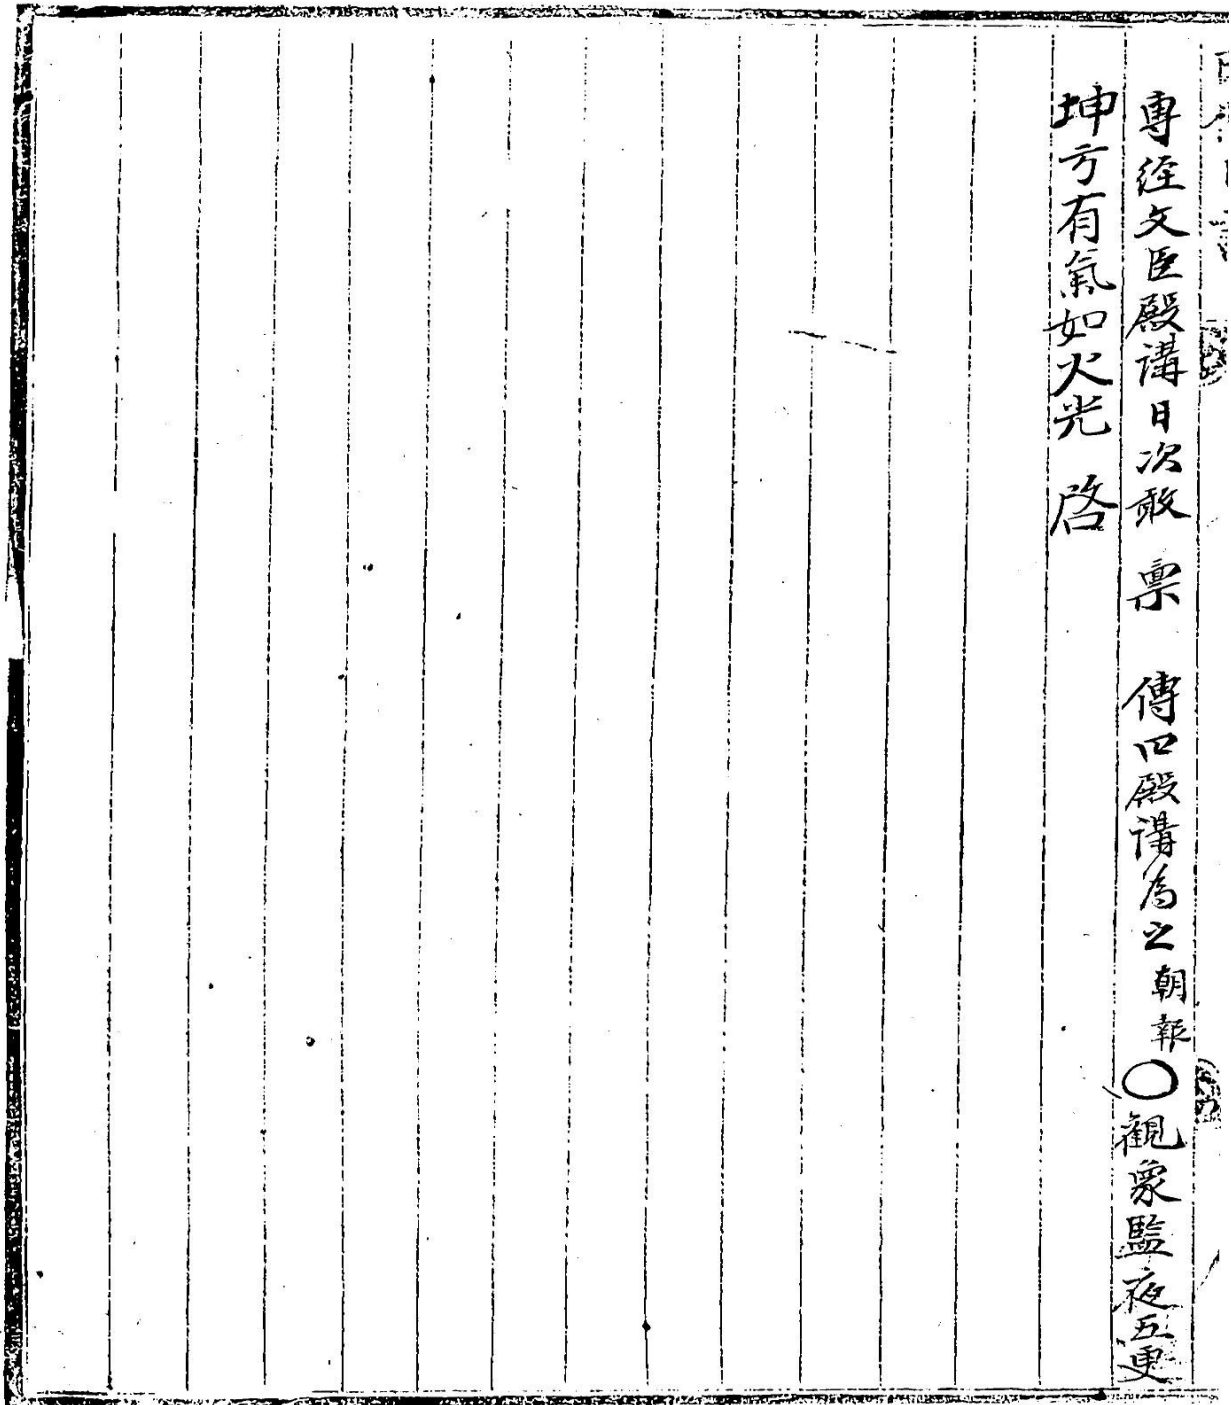 專經文臣殿講日次敢 稟 傳曰殿講爲之朝報○觀象監夜五更
坤方有氣如火光 啓